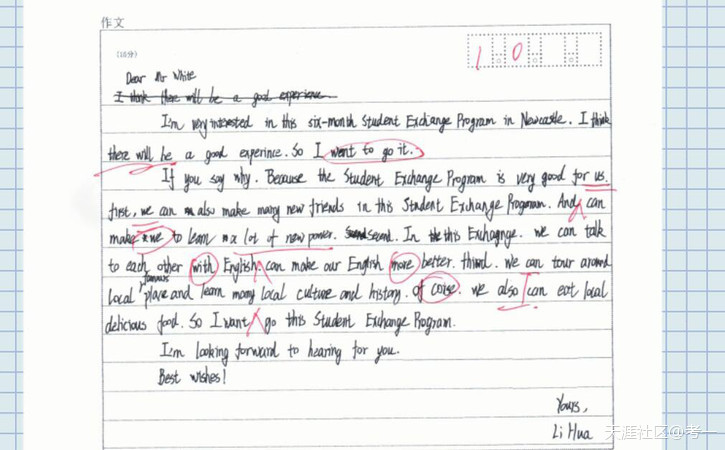 作文
(16分)
1 0
Dear Mr White
I think there will be a good experience.
I'm very interested in this six-month Student Exchange Program in Newcastle. I think
there will be a good experince. So I want to go it.
If you say why. Because the Student Exchange Program is very good for us.
first, we can also make many new friends in this Student Exchange Program. And can
make we to learn a lot of new power. second. In this Exchagnge. we can talk
to each other with English. can make our English more better. third. we can tour around
local famous place and learn many local culture and history. of corse. we also can eat local
delicious food. So I want go this Student Exchange Program.
I'm looking forward to hearing for you.
Best wishes!
Yours,
Li Hua
天涯社区@考一